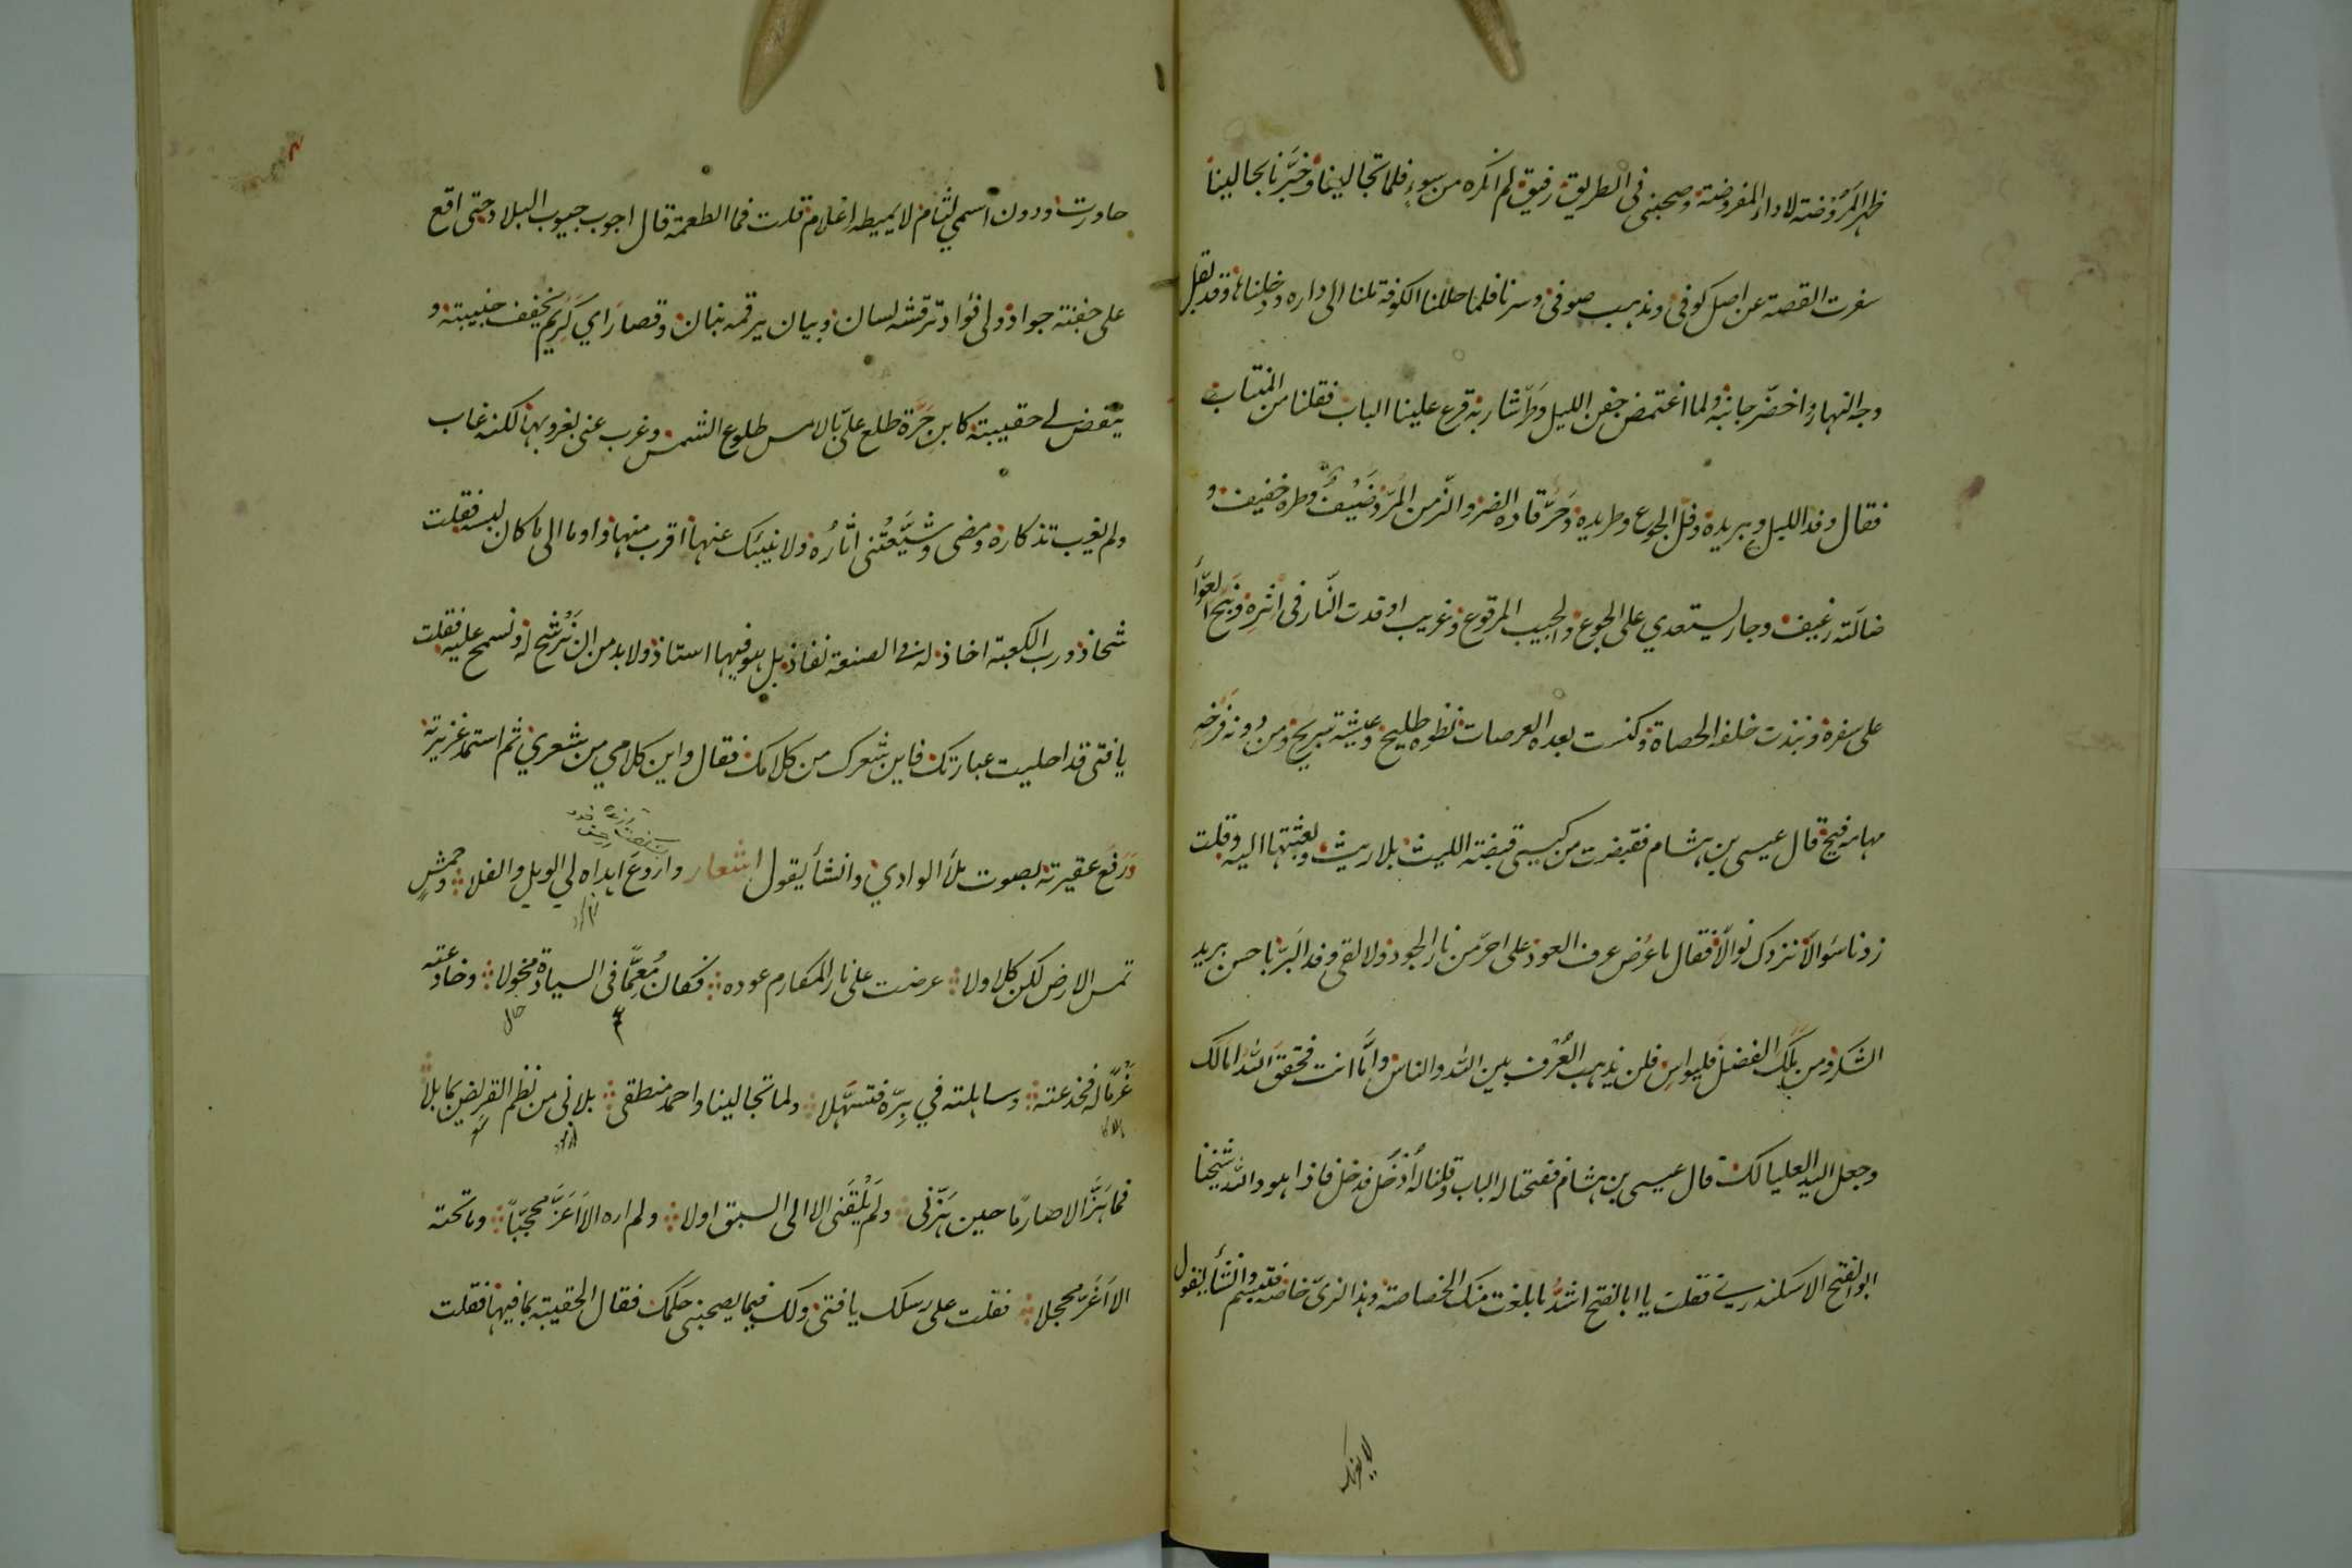 ظهر المَرُوْضة لاداء المفروضة وصحبنى فى الطريق رفيق لم انكره من سوءٍ فلما تجالينا وخَبَّرنا بحالينا
سفرت القصة عن اصل كوفى ومذهب صوفى وسرنا فلما حللنا الكوفة ملنا الى داره ودخلناها وقد بقل
وجه النهار واخضرّ جانبه ولما اغتمض جفن الليل وطَرّ شاربه قرع علينا الباب فقلنا من المنتاب
فقال وفد الليل وبريده وفلّ الجوع وطريده وحَرٌّ قاده الضر والزّمن المُرّ وضَيْفٌ وطؤه خفيف و
ضالته رغيف وجار يستعدي على الجوع والجيب المرقوع وغريب اوقدت النّار فى اثرِه ونَبَح العَوّاُ
على سفره ونبذت خلفه الحصاة وكنست بعده العرصات نضوه طليح وعيشه تبريح ومن دونه فَرْخَيه
مهامه فيح قال عيسى بن هشام فقبضت من كيسى قبضة الليث بلا ريث وبعثتها اليه وقلت
زدنا سَوالًا نزدك نوالًا فقال ما عُرض عرف العود على احرّ من نار الجود ولا لقى وفد البَرّ باحسن بريد
الشكر ومن ملَك الفضل فليواسِ فلن يذهب العُرْف بين الله والناس وامّا انت فحقق الله امالك
وجعل اليد العليا لك قال عيسى بن هشام ففتحنا له الباب وقلنا له اُدْخُل فدخل فاذا هو والله شيخنا
ابو الفتح الاسكندري فقلت يا ابا الفتح اشدُّ ما بلغت منك الخصاصة وهذا الزىّ خاصّة فتبسم وانشأ يقول
لا يغرنك
حاورت ودون اسمي لثام لا يميطه اعلام قلت فما الطعمة قال اجوب جيوب البلاد حتى اقع
على جفنة جواد ولى فؤاد ترقشه لسان وبيان يرقمه بنان وقصاراي كَرِيم يخفف جنيبته و
ينفض لى حقيبته كابن حَرّة طلع علىّ بالامس طلوع الشمس وغرب عنى بغروبها لكنه غاب
ولم يغب تذكاره ومضى وشَيَّعَتْنى اثارُه ولا ينبئك عنها اقرب منها واوما الى ما كان لبسه فقلت
شحاذ ورب الكعبة اخاذ له فى الصنعة نفاذ بل هو فيها استاذ ولا بد من ان نَرْشَح له ونسمح عليه فقلت
يا فتى قد احليت عبارتك فاين شعرك من كلامك فقال واين كلامي من شعري ثم استمد غريزته
وَرَفع عقيرته بصوت ملأ الوادي وانشأ يقول اشعار واروَع اهداه لي الويل والفلا وخمشٍ
تمس الارض لكن كلا ولا عرضت على نار المكارم عوده فكان مُعِمًّا فى السيادة مخولا وخادعته
عُرمَّاله فخدعته وساهلته في بِرّه فتسَهّلا ولما تجالينا واحمد منطقى بلانى من نظم القريض بما بلا
فما هَزَّ الا صارمًا حين هَزّنى ولَم يُلْقَنى الا الى السبق اولا ولم اره الا اَغَرَّ محجّبًا وما تحته
الا اَغَرّ محجلا فقلت على رسلك يا فتى ولك فيما يصحبنى حكمك فقال الحقيبة بما فيها فقلت